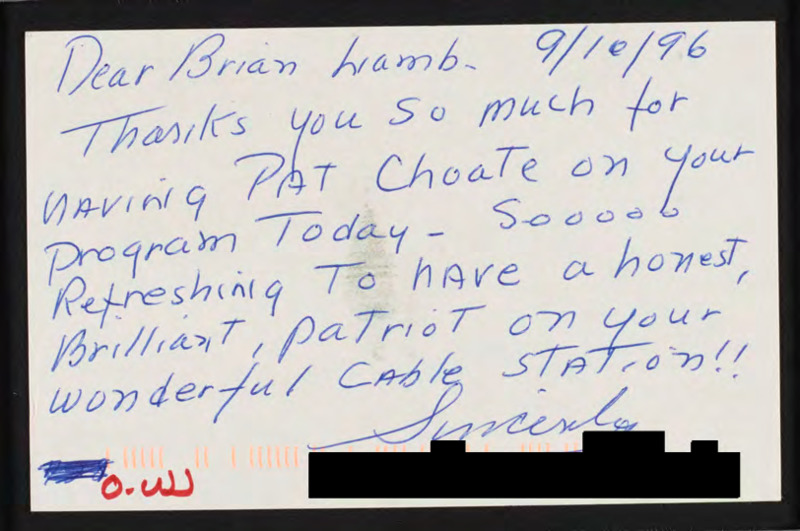 Dear Brian Lamb- 9/10/96
Thanks you so much for
HAViNg PAT ChoaTe on your
program Today - Sooooo
Refreshing To hAve a honest,
Brilliant, patrioT on your
wonderful CAble STATion!!
Sincerely